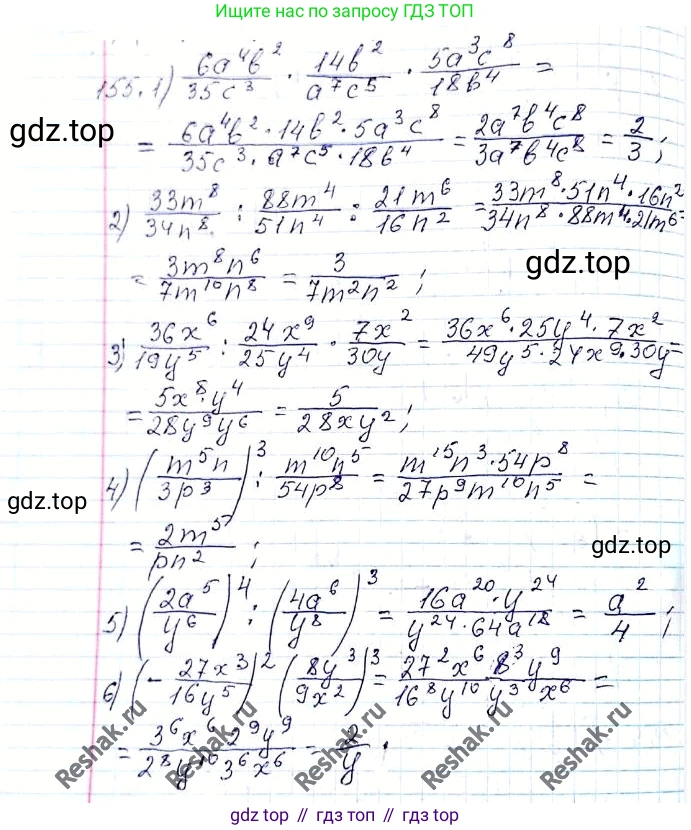 Ищите нас по запросу ГДЗ ТОП
155.1) 6a⁴b²/35c³ · 14b²/a⁷c⁵ · 5a³c⁸/18b⁴ =
gdz.top
= 6a⁴b²·14b²·5a³c⁸/35c³·a⁷c⁵·18b⁴ = 2a⁷b⁴c⁸/3a⁷b⁴c⁸ = 2/3;
2) 33m⁸/34n⁸ : 88m⁴/51n⁴ : 21m⁶/16n² = 33m⁸·51n⁴·16n²/34n⁸·88m⁴·21m⁶ =
= 3m⁸n⁶/7m¹⁰n⁸ = 3/7m²n²;
gdz.top
3) 36x⁶/19y⁵ : 24x⁹/25y⁴ · 7x²/30y = 36x⁶·25y⁴·7x²/49y⁵·24x⁹·30y =
= 5x⁸·y⁴/28y⁹y⁶ = 5/28xy²;
4) (m⁵n/3p³)³ : m¹⁰n⁵/54p⁸ = m¹⁵n³·54p⁸/27p⁹m¹⁰n⁵ =
gdz.top
= 2m⁵/pn²;
gdz.top
5) (2a⁵/y⁶)⁴ : (4a⁶/y⁸)³ = 16a²⁰·y²⁴/y²⁴·64a¹⁸ = a²/4;
6) (-27x³/16y⁵)² (8y³/9x²)³ = 27²x⁶·8³y⁹/16⁸y¹⁰ y³ x⁶ =
= 3⁶x⁶ 2⁹y⁹/2⁸y¹⁰ 3⁶x⁶ = 2/y.
Reshak.ru
Reshak.ru
Reshak.ru
Reshak.ru
gdz.top | гдз.топ | gdz.top